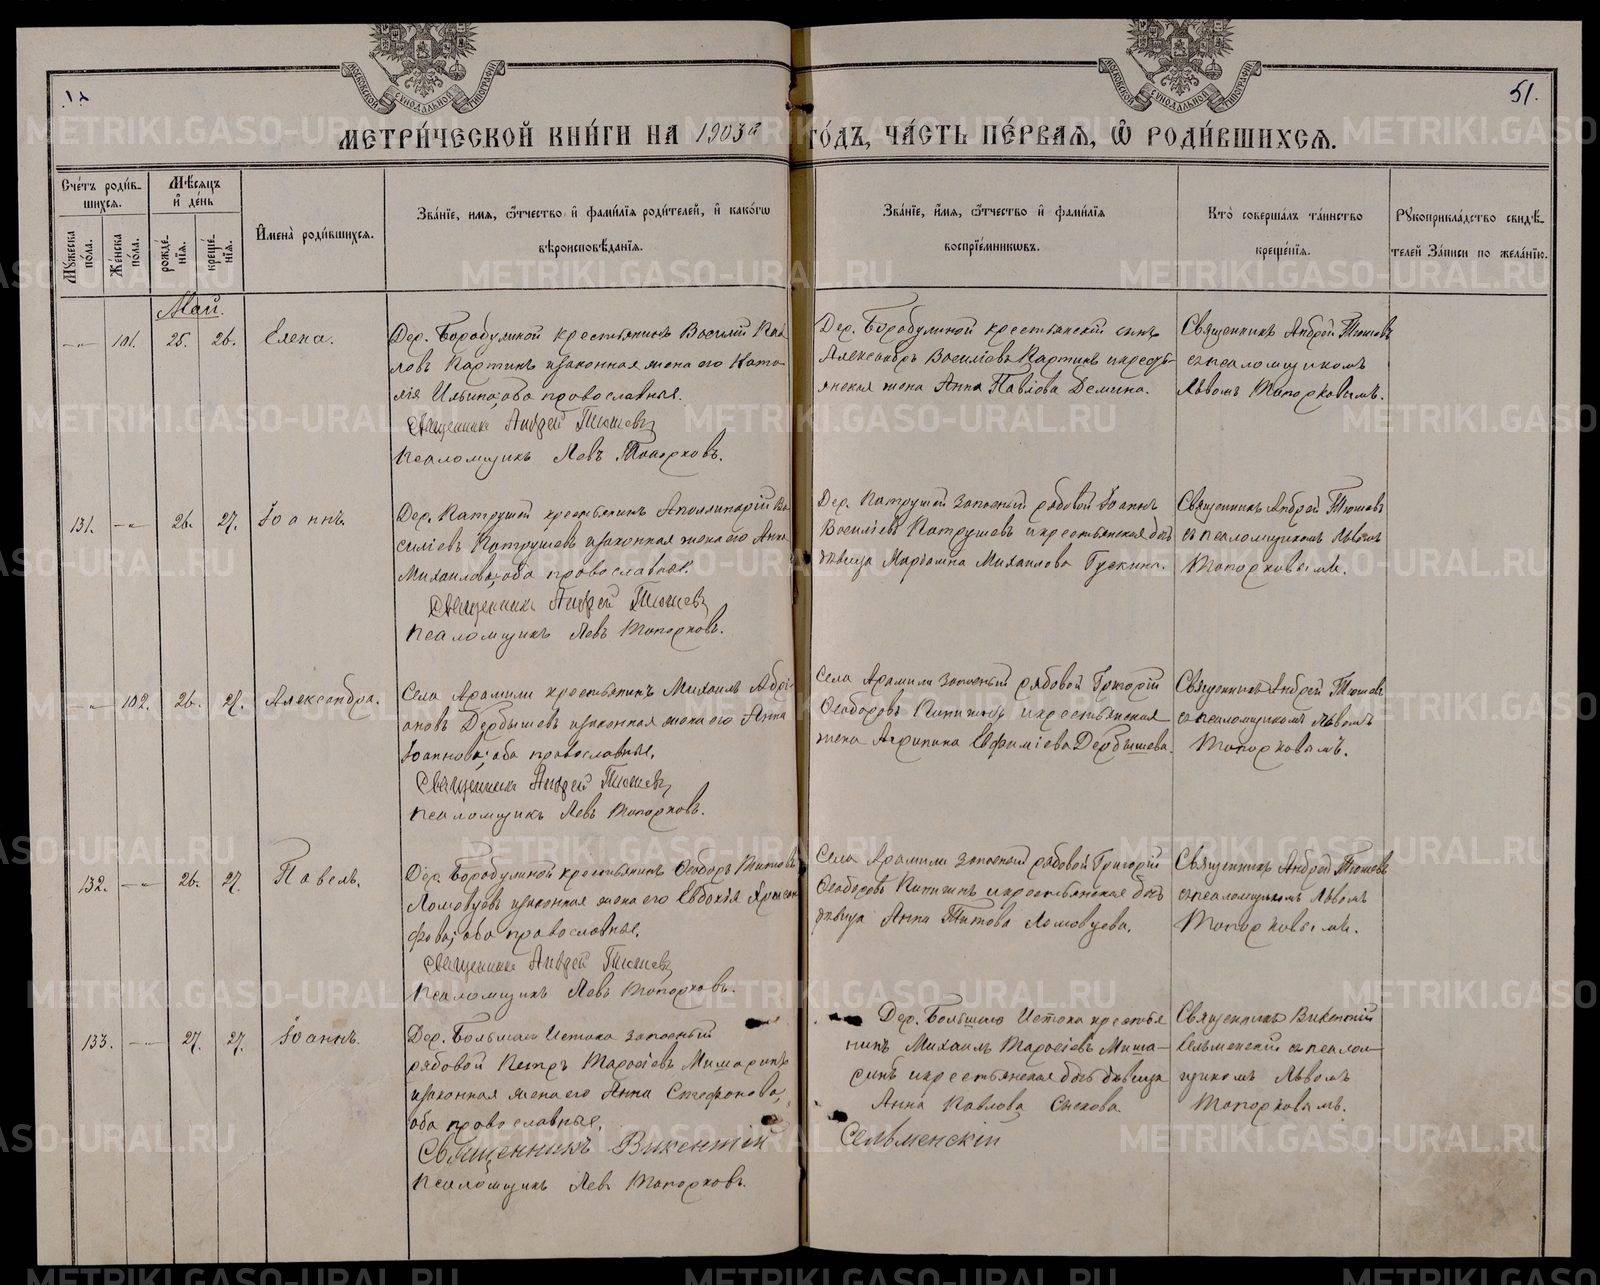 МОСКОВСКОЙ СѴНОДАЛЬНОЙ ТИПОГРАФІИ
МОСКОВСКОЙ СѴНОДАЛЬНОЙ ТИПОГРАФІИ
51.
МЕТРИ́ЧЕСКОЙ КНИ́ГИ НА 1903й ГО́ДЪ, ЧА́СТЬ ПЕ́РВАѦ, Ѡ РОДИ́ВШИХСѦ.
Сче́тъ роди́в-
шихсѧ.
Мꙋжеска по́ла.
Же́нска по́ла.
Мѣ́сѧцъ
и҆ де́нь
рожде́-
нїѧ.
креще́-
нїѧ.
И҆мена̀ роди́вшихсѧ.
Зва́нїе, имѧ, ѻ҆́тчество и҆ фами́лїѧ роди́телей, и҆ како́гѡ
вѣроисповѣ́данїѧ.
Зва́нїе, и҆́мѧ, ѻ҆́тчество и҆ фами́лїѧ
воспрїе́мникѡвъ.
Кто̀ соверша́лъ та́инство
креще́нїѧ.
Рꙋкоприкла́дство свидѣ́-
телей За́писи по жела́нїю.
Май.
101. 25. 26. Елена.
Дер. Бородулиной крестьянинъ Василій Пав-
ловъ Картинъ и законная жена его Ната-
лія Ильина; оба православные.
Священникъ Андрей Тюшевъ
Псаломщикъ Левъ Топорковъ.
Дер. Бородулиной крестьянскій сынъ
Александръ Василіевъ Картинъ и кресть-
янская жена Анна Павлова Демина.
Священникъ Андрей Тюшевъ
съ псаломщикомъ
Львомъ Топорковымъ.
131. 26. 27. Іоаннъ.
Дер. Патрушей крестьянинъ Аполлинарій Ва-
силіевъ Патрушевъ и законная жена его Анна
Михаилова; оба православные.
Священникъ Андрей Тюшевъ
Псаломщикъ Левъ Топорковъ.
Дер. Патрушей запасный рядовой Іоаннъ
Василіевъ Патрушевъ и крестьянская дочь
дѣвица Михаилова Гускина.
Священникъ Андрей Тюшевъ
съ псаломщикомъ Львомъ
Топорковымъ.
102. 26. 27. Александра.
Села Арамили крестьянинъ Михаилъ Адрі-
ановъ Дербышевъ и законная жена его Анна
Іоаннова; оба православные.
Священникъ Андрей Тюшевъ
Псаломщикъ Левъ Топорковъ.
Села Арамили запасный рядовой Григорій
Ѳеодоровъ и крестьянская
жена Агрипина Евфиміева Дербышева.
Священникъ Андрей Тюшевъ
съ псаломщикомъ Львомъ
Топорковымъ.
132. 26. 27. Павелъ.
Дер. Бородулиной крестьянинъ Ѳеодоръ Титовъ
Ломовцевъ и законная жена его Евдокія
оба православные.
Священникъ Андрей Тюшевъ
Псаломщикъ Левъ Топорковъ.
Села Арамили запасный рядовой Григорій
Ѳеодоровъ и крестьянская дочь
дѣвица Анна Титова Ломовцева.
Священникъ Андрей Тюшевъ
съ псаломщикомъ Львомъ
Топорковымъ.
133. 27. 27. Іоаннъ.
Дер. Большаго Истока запасный
рядовой Петръ Тарасіевъ
и законная жена его Анна Стефанова,
оба православные.
Священникъ Викентій Сельменскій
Псаломщикъ Левъ Топорковъ.
Дер. Большаго Истока крестья-
нинъ Михаилъ Тарасіевъ
и крестьянская дочь дѣвица
Анна Павлова
Священникъ Викентій
Сельменскій съ псалом-
щикомъ Львомъ
Топорковымъ.
METRIKI.GASO-URAL.RU